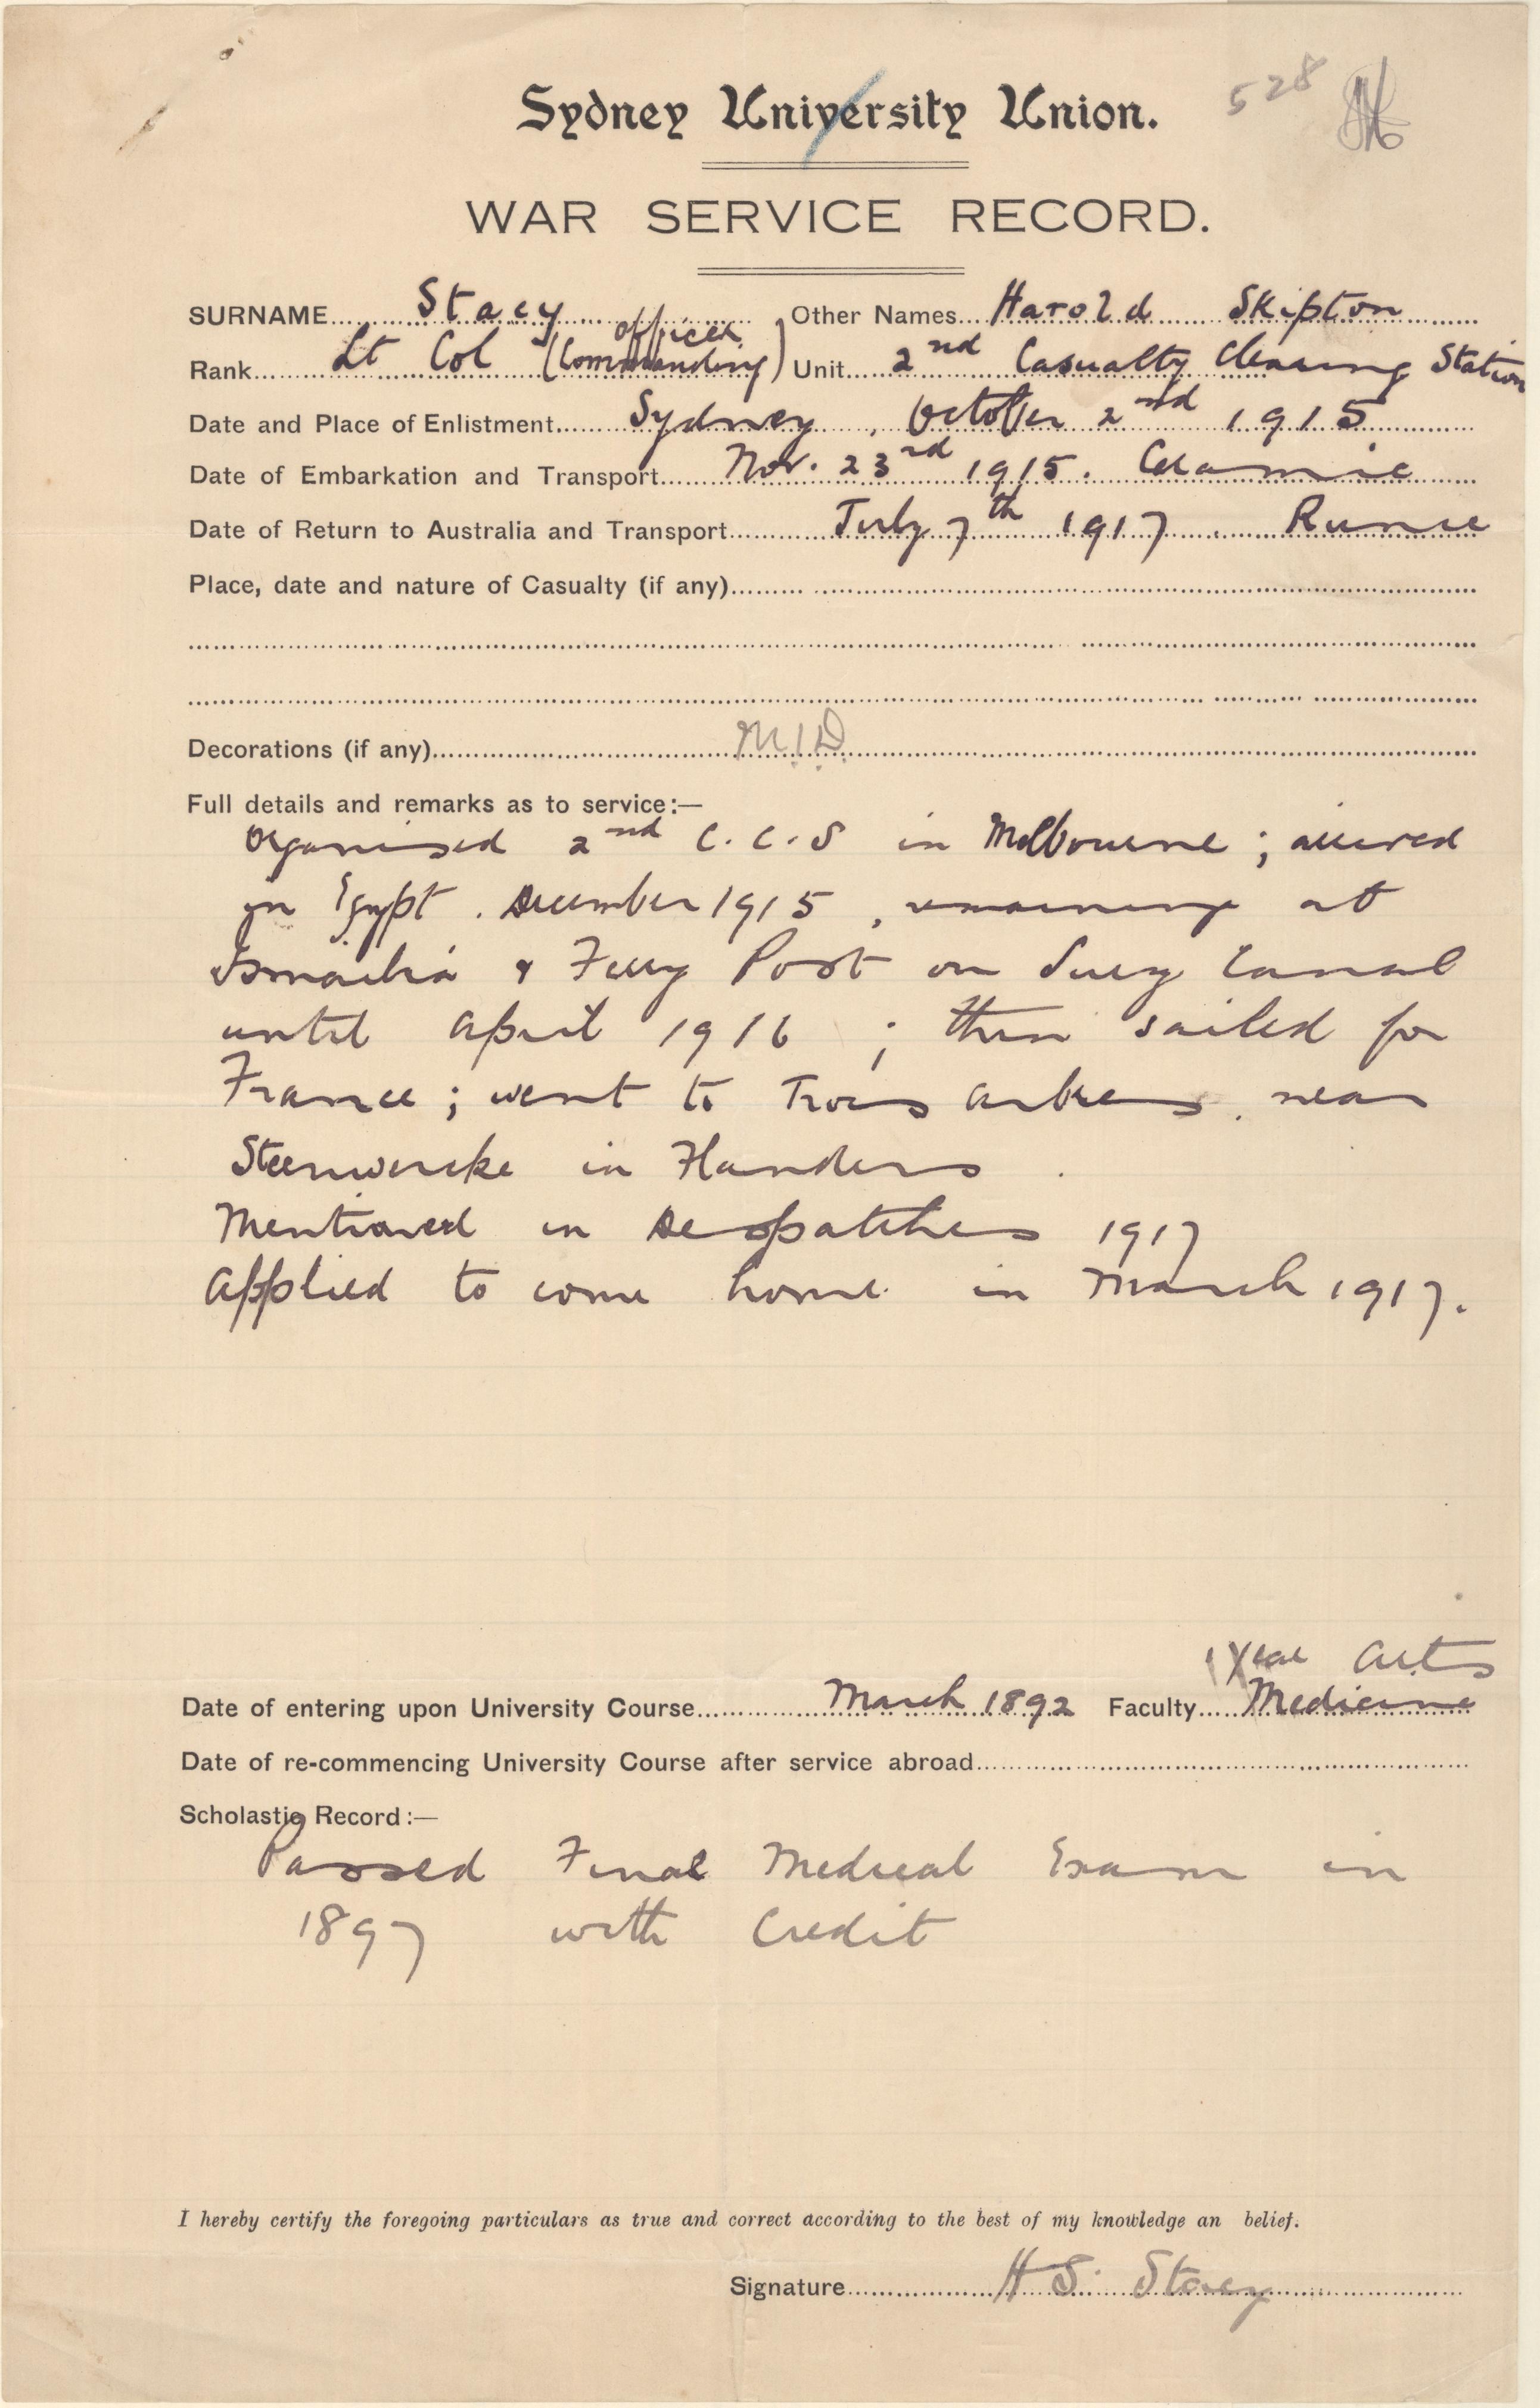 Sydney University Union.
528
WAR SERVICE RECORD.
SURNAME Stacy Other Names Harold Skipton
Rank Lt Col (Commanding officer) Unit 2nd Casualty Clearing Station
Date and Place of Enlistment Sydney, October 2nd 1915
Date of Embarkation and Transport Nov. 23rd 1915. Ceramic
Date of Return to Australia and Transport July 7th 1917. Runic
Place, date and nature of Casualty (if any)
Decorations (if any) M.I.D.
Full details and remarks as to service:—
Organised 2nd C.C.S in Melbourne; arrived
in Egypt. December 1915, remaining at
Ismailia & Ferry Post on Suez Canal
until April 1916; then sailed for
France; went to Trois Arbres, near
Steenwercke in Flanders.
Mentioned in Despatches 1917
Applied to come home in March 1917.
1 Year Arts
Date of entering upon University Course March 1892 Faculty Medicine
Date of re-commencing University Course after service abroad
Scholastic Record:—
Passed Final Medical Exam in
1897 with Credit
I hereby certify the foregoing particulars as true and correct according to the best of my knowledge an belief.
Signature H S. Stacy